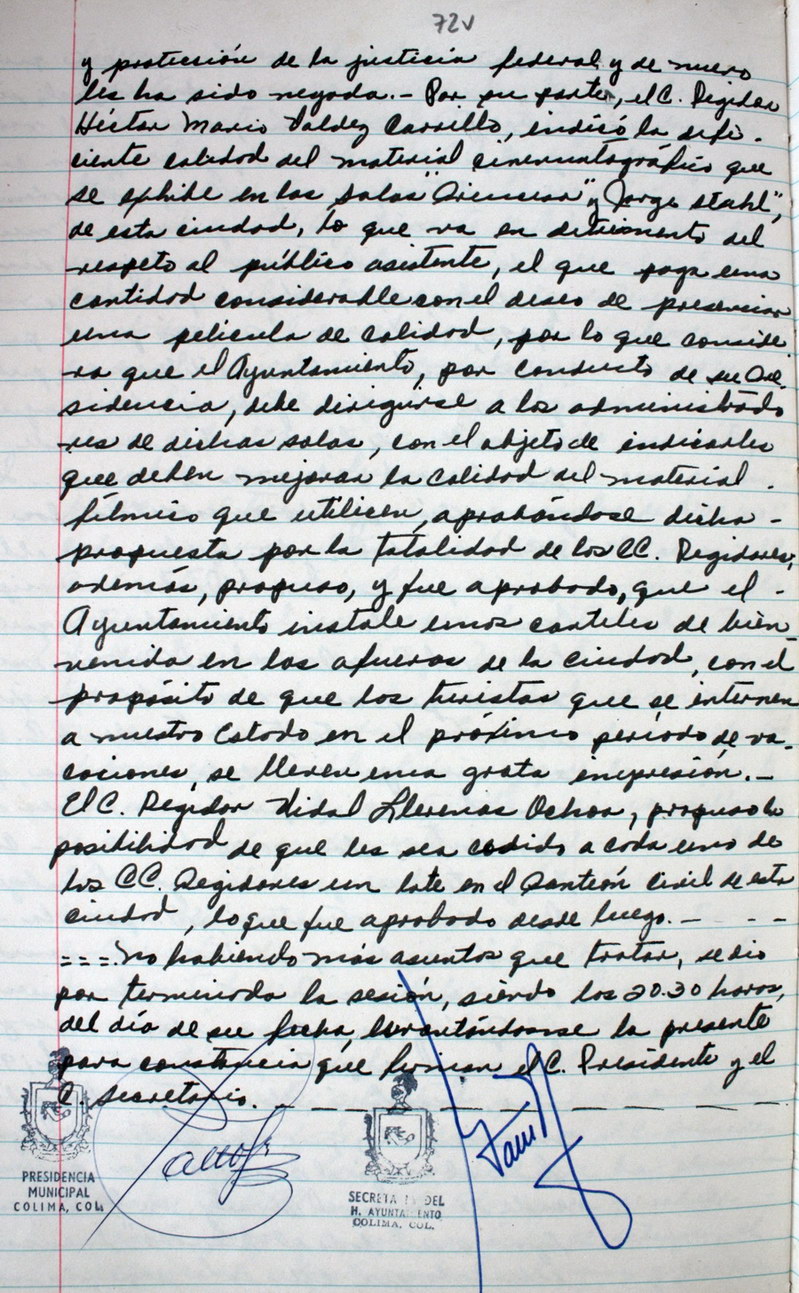 72v
y protección de la justicia federal y de nuevo
les ha sido negada.- Por su parte, el C. Regidor
Héctor Mario Valdez Carrillo, indicó la defi-
ciente calidad del material cinematográfico que
se exhibe en las salas "Diana" y "Jorge Stahl",
de esta ciudad, lo que va en detrimento del
respeto al público asistente, el que paga una
cantidad considerable con el deseo de presenciar
una película de calidad, por lo que conside
ra que el Ayuntamiento, por conducto de su Pre
sidencia, debe dirigirse a los administrado
res de dichas salas, con el objeto de indicarles
que deben mejorar la calidad del material -
fílmico que utilicen, aprobándose dicha -
propuesta por la totalidad de los CC. Regidores;
además, propuso, y fue aprobado, que el -
Ayuntamiento instale unos carteles de bien
venida en las afueras de la ciudad, con el
propósito de que los turistas que se internen
a nuestro Estado en el próximo período de va-
caciones, se lleven una grata impresión.-
El C. Regidor Vidal Llerenas Ochoa, propuso la
posibilidad de que les sea cedido a cada uno de
los CC. Regidores un lote en el Panteón Civil de esta
ciudad, lo que fue aprobado desde luego. - - - -
=== No habiendo más asuntos que tratar, se dio
por terminada la sesión, siendo las 20.30 horas,
del día de su fecha, levantándose la presente
para constancia que firman el C. Presidente y el
C. Secretario. - - - - - - - - - - - -
PRESIDENCIA
MUNICIPAL
COLIMA, COL.
SECRETA DEL
H. AYUNTAMIENTO
COLIMA, COL.